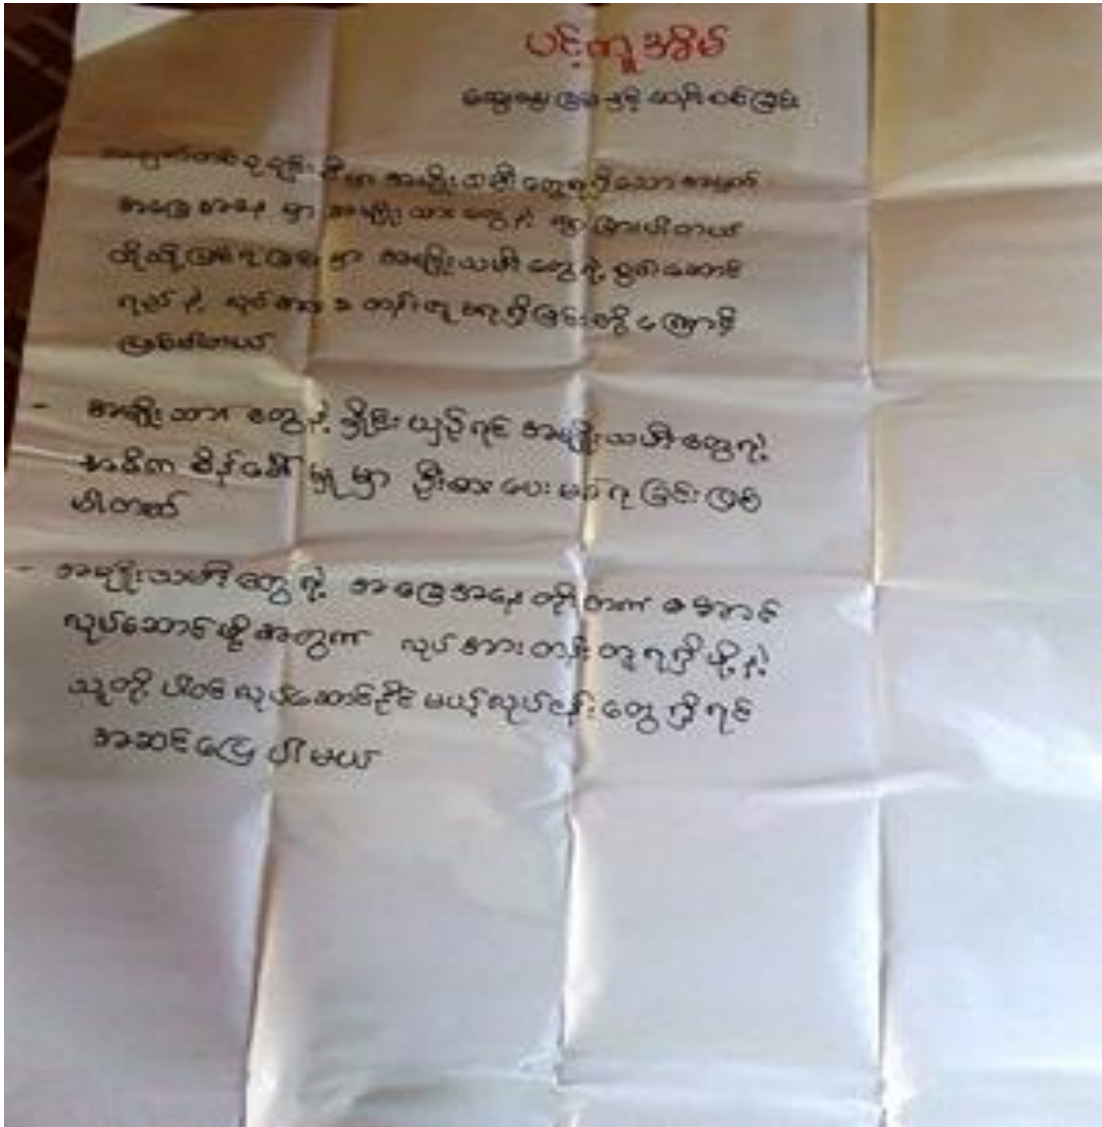 ပင့်ကူအိမ်
ဆွေးနွေးခြင်းနှင့် ဆန်းစစ်ခြင်း
အမျိုးသမီးတွေရရှိသောအမှတ်
အခြေအနေမှာ အမျိုးသားတွေနဲ့ ကွာခြားပါတယ်
ထိုသို့ဖြစ်ရခြင်းမှာ အမျိုးသမီးတွေရဲ့ စွမ်းဆောင်
ရည်နဲ့ လုပ်အားခ တန်းတူမရရှိခြင်းတို့ကြောင့်
ဖြစ်ပါတယ်
- အမျိုးသားတွေနဲ့ နှိုင်းယှဉ်ရင် အမျိုးသမီးတွေရဲ့
အဓိကစိန်ခေါ်မှုမှာ ဦးစားပေးမခံရခြင်းဖြစ်
ပါတယ်
- အမျိုးသမီးတွေရဲ့ အခြေအနေတိုးတက်အောင်
လုပ်ဆောင်ဖို့အတွက် လုပ်အားတန်းတူရရှိဖို့နဲ့
သူတို့ ပါဝင်လုပ်ဆောင်နိုင်မယ့်လုပ်ငန်းတွေရှိရင်
အဆင်ပြေပါမယ်